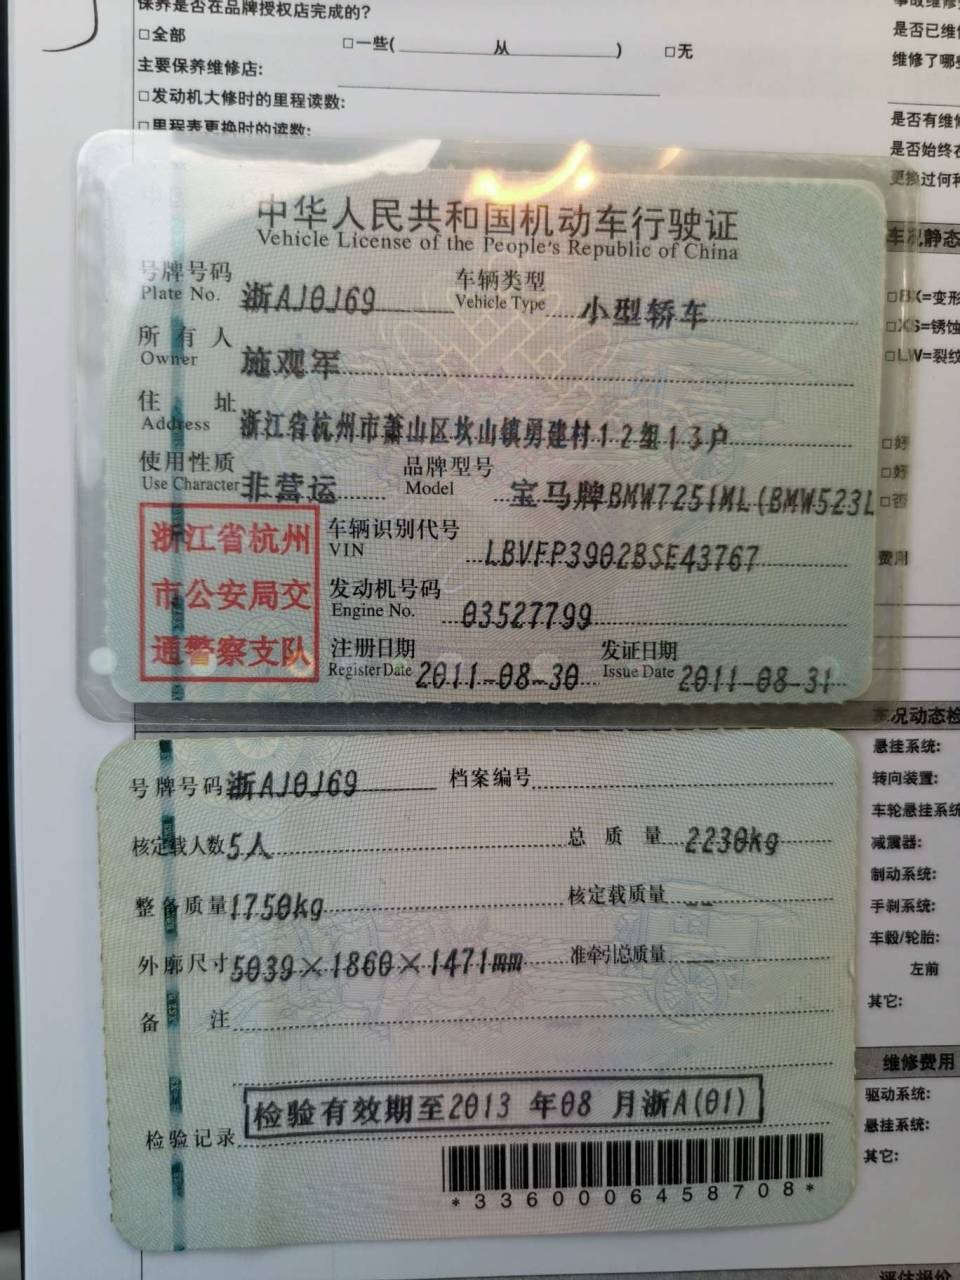 保养是否在品牌授权店完成的?
□全部 □一些( 从 ) □无
主要保养维修店:
□发动机大修时的里程读数:
□里程表更换时的读数:
是否已维修
维修了哪些
是否有维修
是否始终在
更换过何种
车况静态
□BX=变形
□XS=锈蚀
□LW=裂纹
□好
□好
□否
费用
中华人民共和国机动车行驶证
Vehicle License of the People's Republic of China
号牌号码 Plate No. 浙AJ0J69 车辆类型 Vehicle Type 小型轿车
所有人 Owner 施观军
住址 Address 浙江省杭州市萧山区坎山镇勇建村12组13户
使用性质 Use Character 非营运 品牌型号 Model 宝马牌BMW7251ML(BMW523L
浙江省杭州
市公安局交
通警察支队
车辆识别代号 VIN LBVFP3902BSE43767
发动机号码 Engine No. 03527799
注册日期 Register Date 2011-08-30 发证日期 Issue Date 2011-08-31
号牌号码 浙AJ0J69 档案编号
核定载人数 5人 总质量 2230kg
整备质量 1750kg 核定载质量 --
外廓尺寸 5039×1860×1471mm 准牵引总质量 --
备注
检验记录 检验有效期至2013年08月浙A(01)
*3360006458708*
车况动态检
悬挂系统:
转向装置:
车轮悬挂系统
减震器:
制动系统:
手刹系统:
车毂/轮胎:
左前
其它:
维修费用
驱动系统:
悬挂系统:
其它:
评估报价